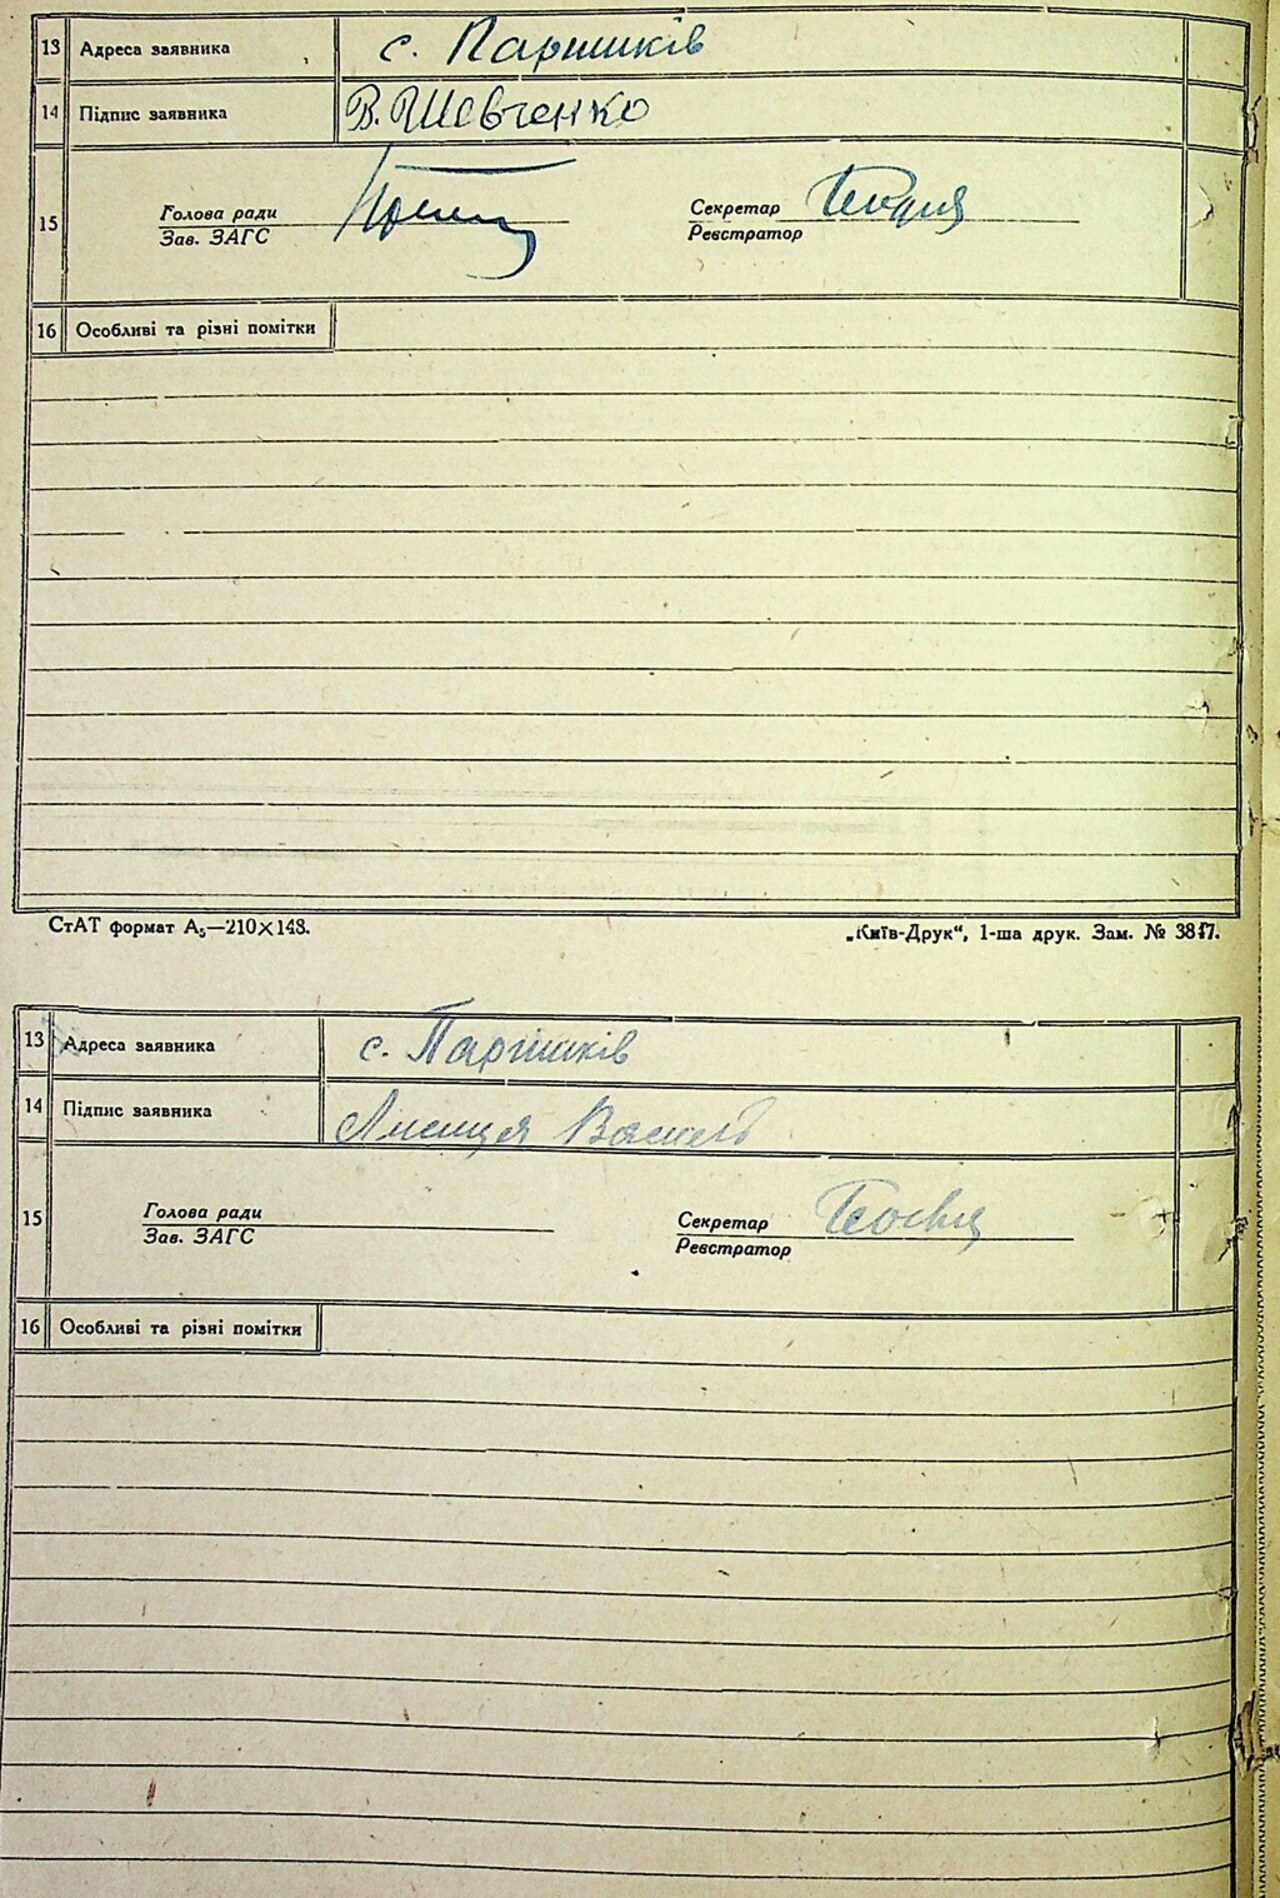 13 Адреса заявника с. Паршиків
14 Підпис заявника В. Шевченко
15 Голова ради Секретар
Зав. ЗАГС Реєстратор
16 Особливі та різні помітки
СтАТ формат А₅—210×148. „Київ-Друк“, 1-ша друк. Зам. № 3817.
13 Адреса заявника с. Паршиків
14 Підпис заявника Лисиця Василь
15 Голова ради Секретар
Зав. ЗАГС Реєстратор
16 Особливі та різні помітки